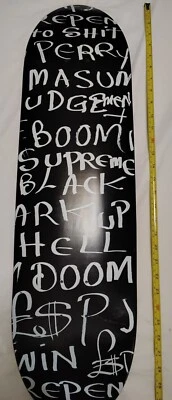 REPEN
to SHIT
PERRY
MASUM
UDGEMENT
EBOOMI
SUPREME
BLACK
ARK UP
HELL
DOOM
£$P J
WIN £$P
REPEN